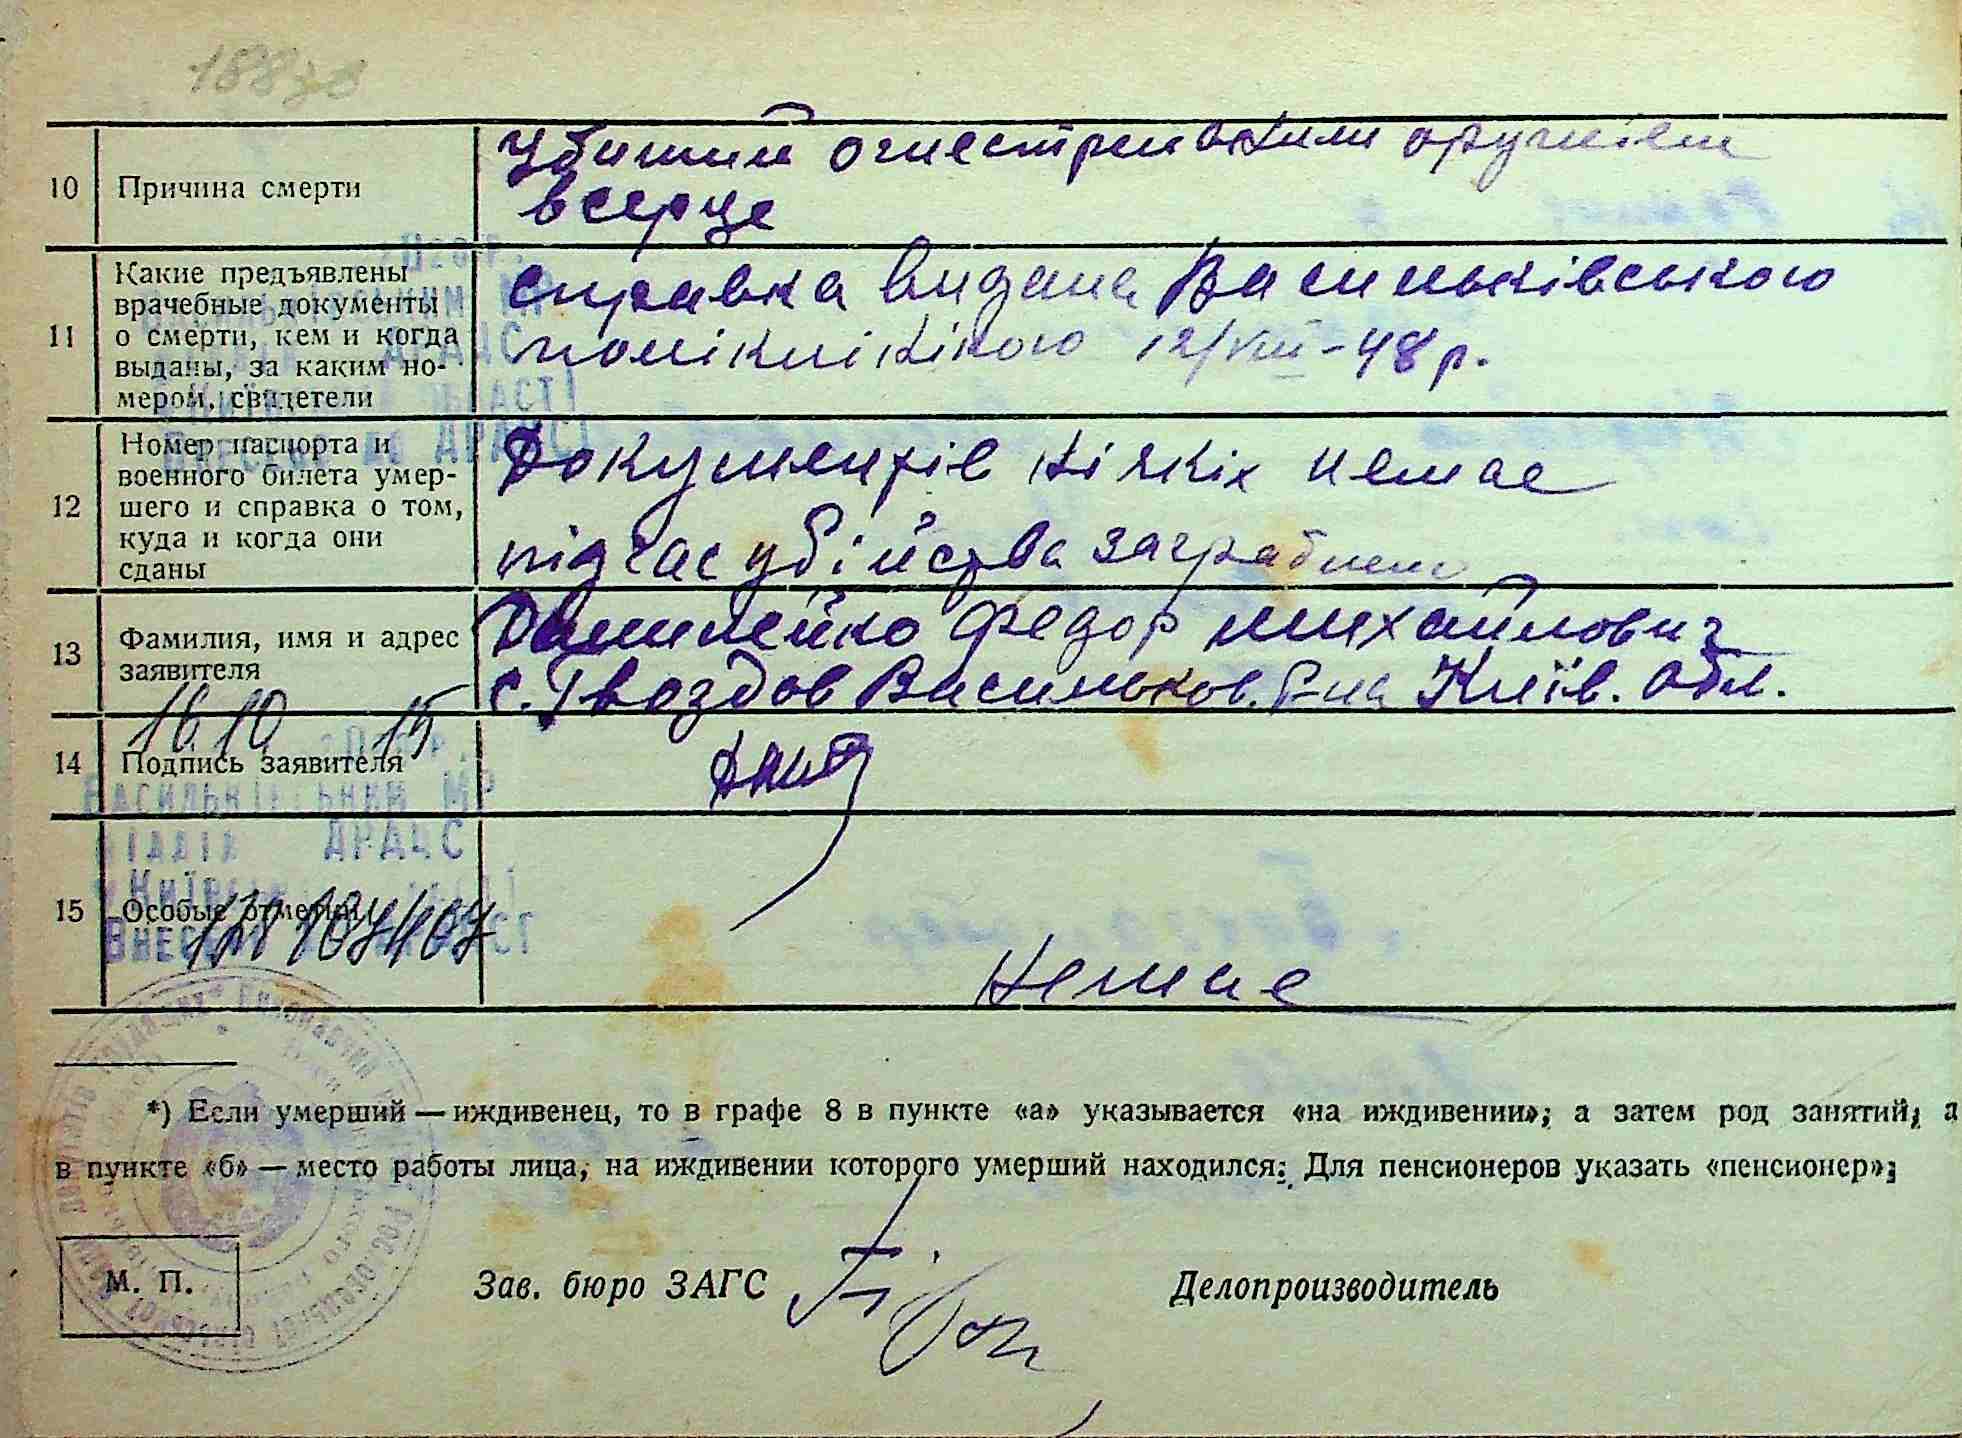 10 Причина смерти
Убитий огнестрельним оружієм
в серце
11 Какие предъявлены
врачебные документы
о смерти, кем и когда
выданы, за каким но-
мером, свидетели
справка видана Васильківською
поліклікікою 12/VIII-48 р.
12 Номер паспорта и
военного билета умер-
шего и справка о том,
куда и когда они
сданы
Документів ніякіх немає
підчас убійства заграблено
13 Фамилия, имя и адрес
заявителя
Данилейко Федор Михайлович
с. Гвоздов Васильков. р-на Київ. обл.
16 10 15
14 Подпись заявителя
Васильківський МР
відділ ДРАЦС
15 Особые отметки
Немає
*) Если умерший — иждивенец, то в графе 8 в пункте «а» указывается «на иждивении»; а затем род занятий; а
в пункте «б» — место работы лица, на иждивении которого умерший находился. Для пенсионеров указать «пенсионер»;
М. П.
Зав. бюро ЗАГС
Делопроизводитель